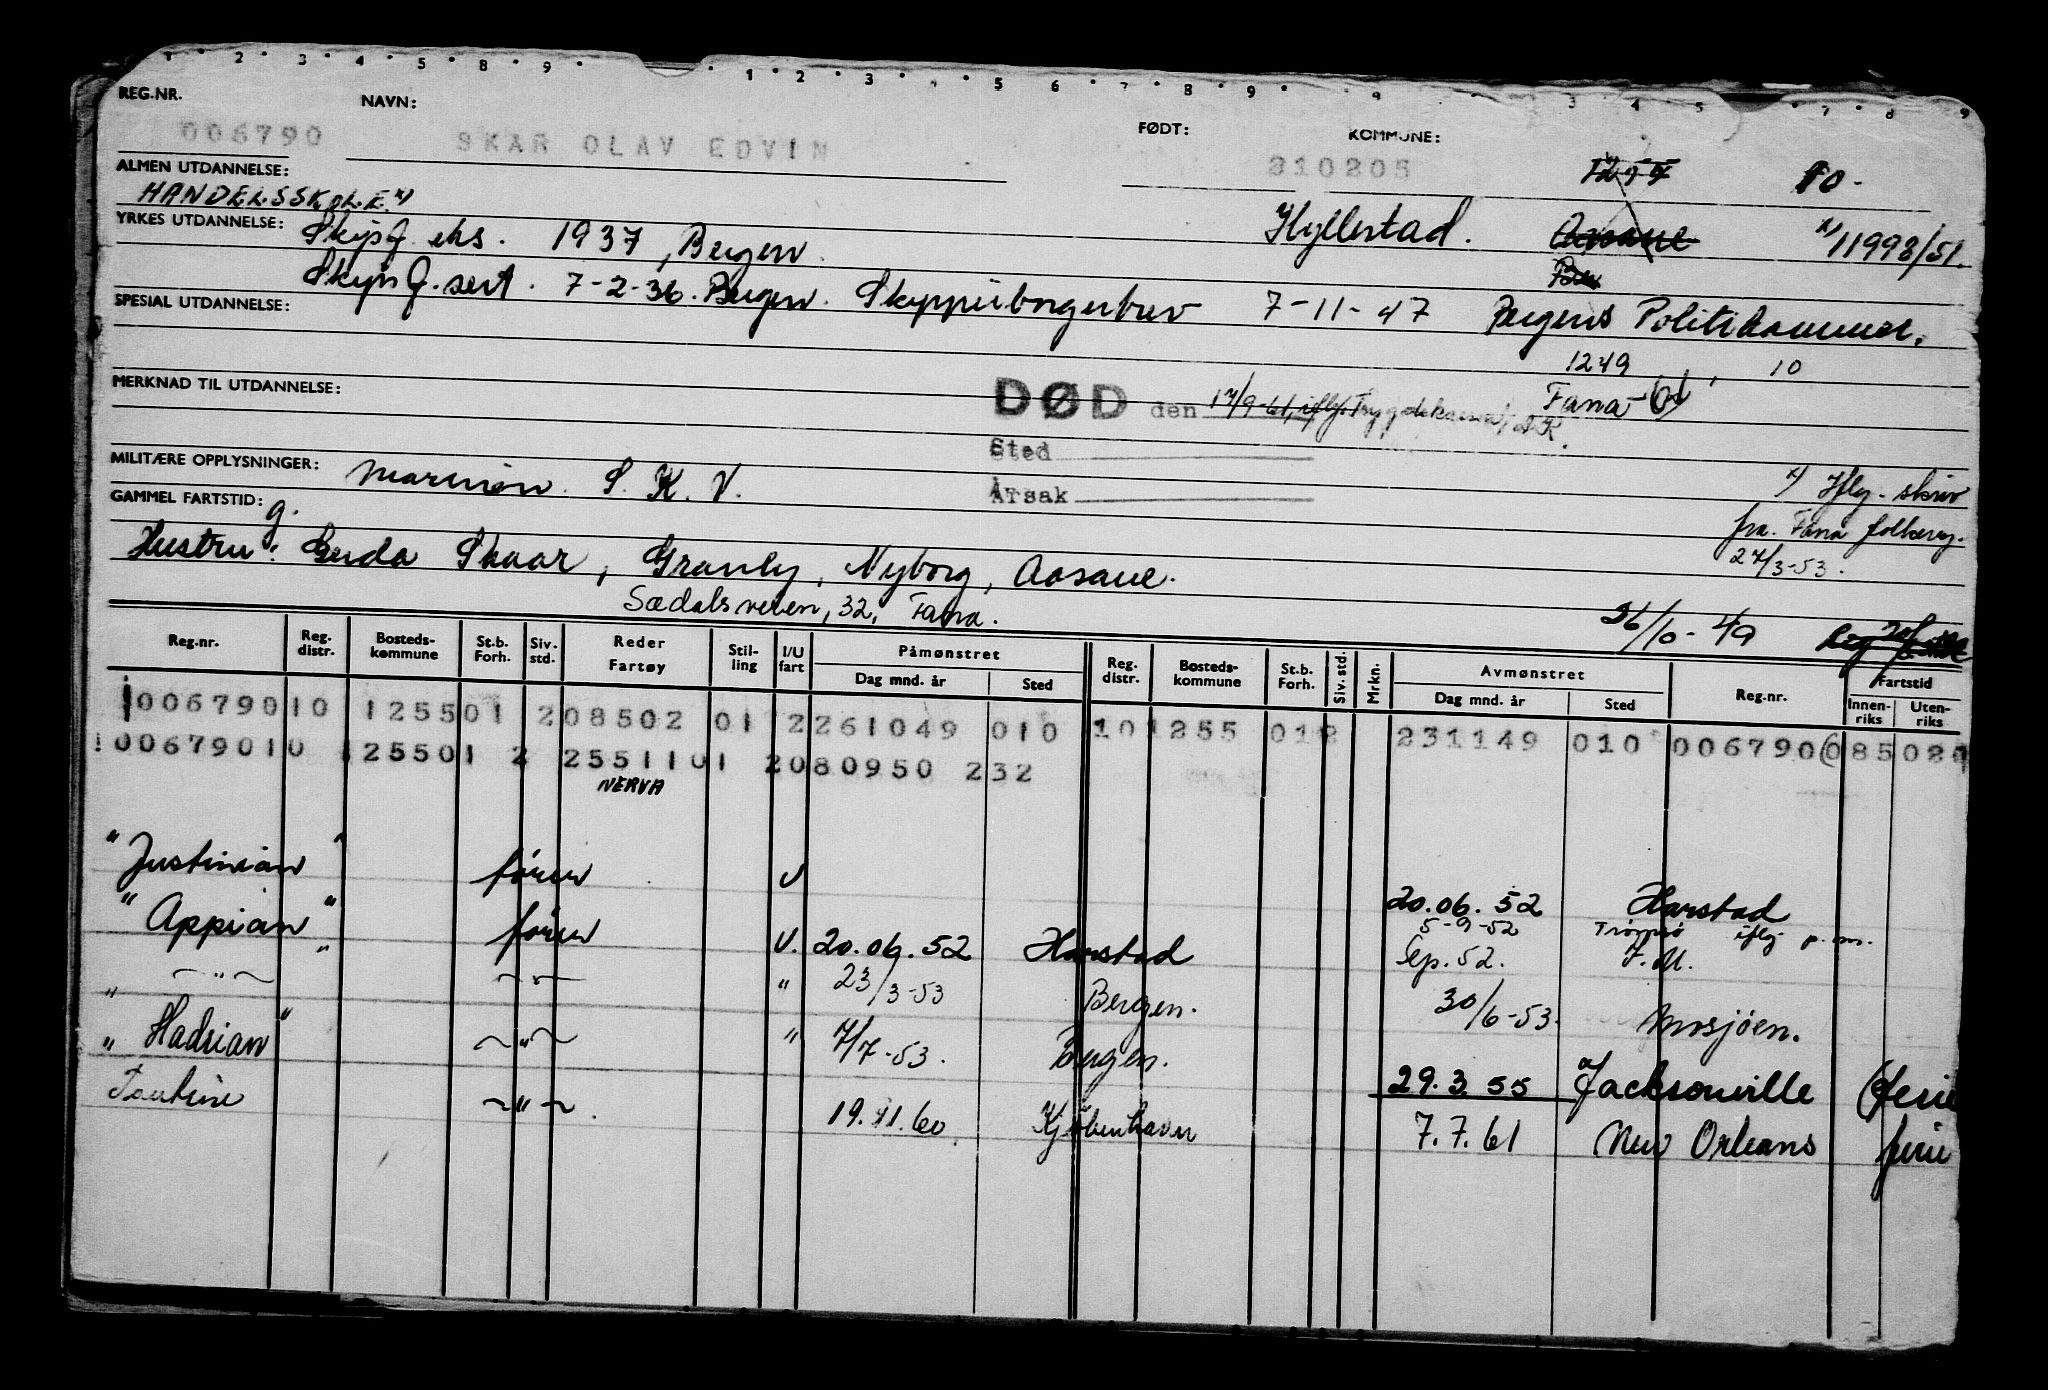 REG.NR. NAVN: FØDT: KOMMUNE:
006790 SKAR OLAV EDVIN 210205 10-
ALMEN UTDANNELSE: HANDELSSKOLE x)
YRKES UTDANNELSE: Skipsf. eks. 1937, Bergen. Hyllestad. Aasane x) 11998/51.
Skipsf. sert. 7-2-36. Bergen. Skipperborgerbrev 7-11-47 Bergens Politikammer.
SPESIAL UTDANNELSE:
1249, 10
MERKNAD TIL UTDANNELSE: DØD den 17/9-61, iflg. Trygdekassa, Fana-
Sted
MILITÆRE OPPLYSNINGER: Marinen. S. K. V. x) Iflg. skriv
Årsak
GAMMEL FARTSTID: g. fra Fana folkereg.
Hustru: Gerda Skaar, Granly, Nyborg, Aasane. 27/3-53.
Sædalsveien, 32, Fana. 26/10-49
Reg.nr. Reg. distr. Bosteds-kommune St.b. Forh. Siv. std. Reder Fartøy Stil-ling I/U fart Påmønstret Dag mnd. år Sted Reg. distr. Bosteds-kommune St.b. Forh. Siv. std. Mrkn. Avmønstret Dag mnd. år Sted Reg.nr. Fartstid Innen-riks Uten-riks
006790 10 1255 01 2 08502 01 2 261049 010 10 1255 01 2 231149 010 006790 085 028
006790 10 1255 01 2 25511 01 2 080950 232
NERVA
"Justinian" fører U 20.06.52 Harstad
"Appian" fører U. 20.06.52 Harstad 5-9-52 Tromsø iflg. p.m.
Sep. 52. J.M.
" — " — " — " — " 23/3-53 Bergen. 30/6-53. Mosjøen.
"Hadrian" — " — " 7/7-53. Bergen. 29.3.55 Jacksonville (ferie
— " — 19.11.60. Kjøbenhavn 7.7.61 New Orleans ferie